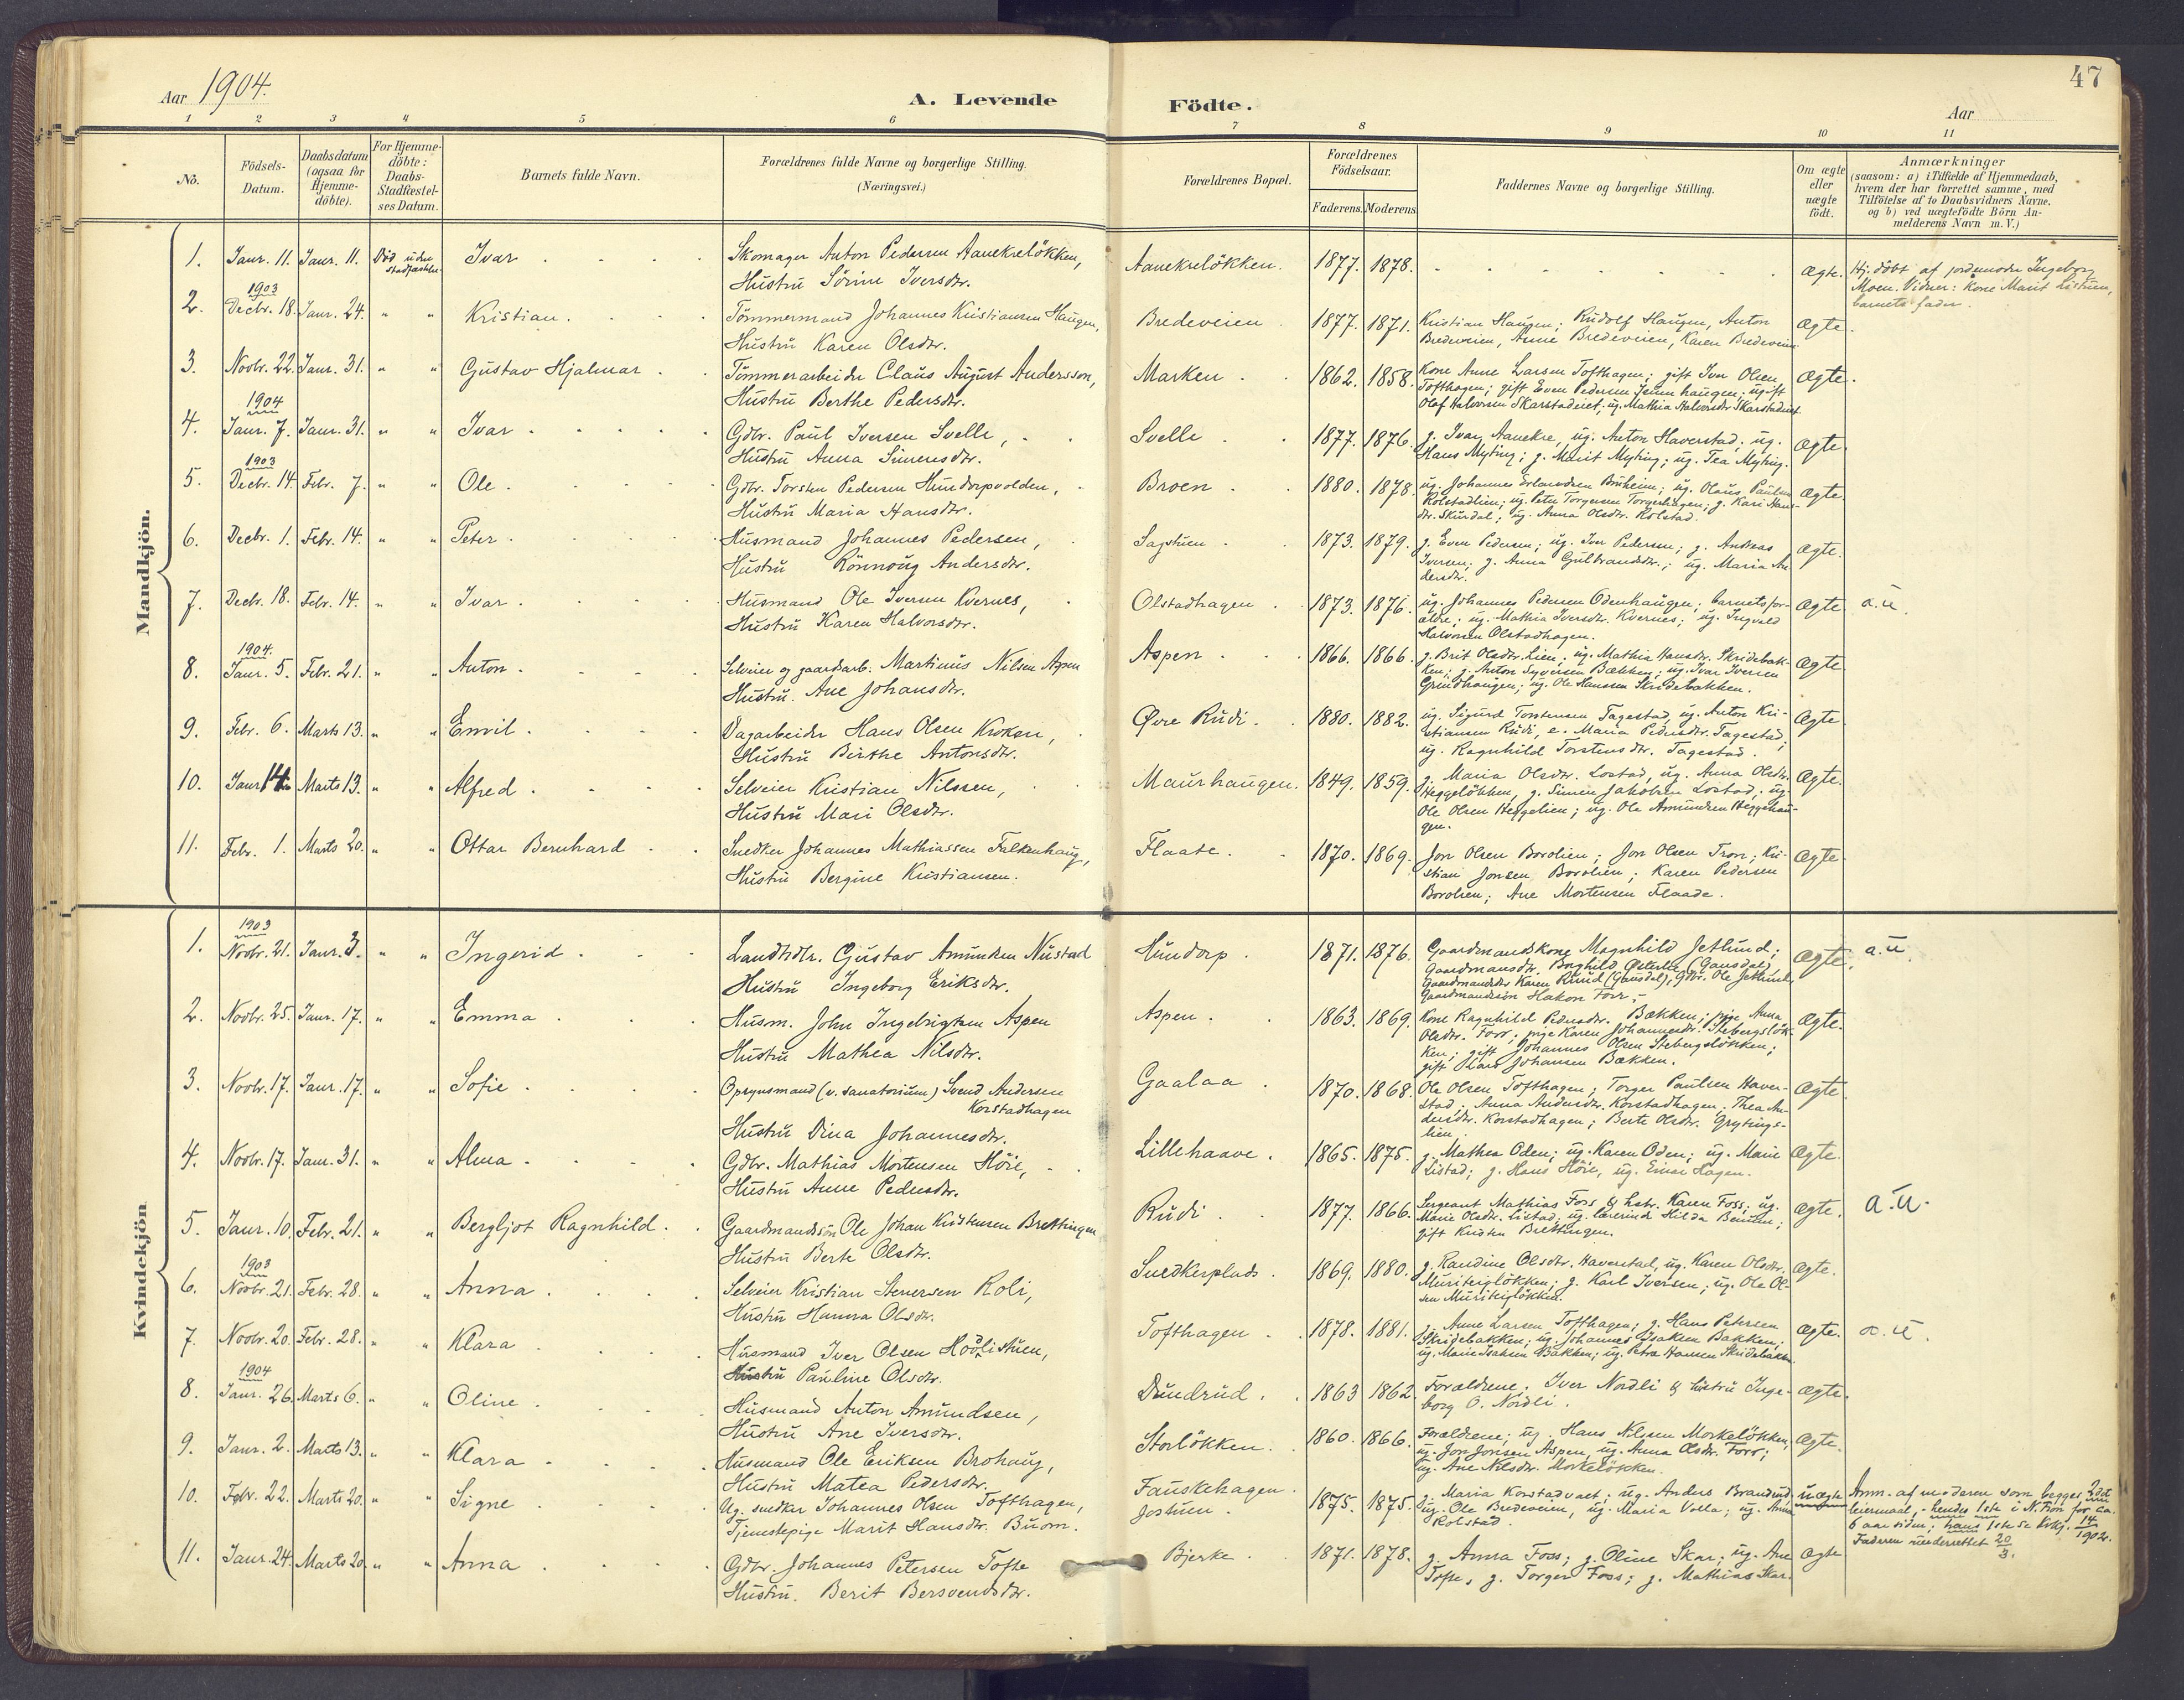 47
Aar 1904.
A. Levende Födte.
Aar
1 2 3 4 5 6 7 8 9 10 11
No.
Födsels-Datum.
Daabsdatum (ogsaa for Hjemme-döbte).
For Hjemme-döbte: Daabs-Stadfæstel-ses Datum.
Barnets fulde Navn.
Forældrenes fulde Navne og borgerlige Stilling. (Næringsvei.)
Forældrenes Bopæl.
Forældrenes Födselsaar.
Faderens. Moderens
Faddernes Navne og borgerlige Stilling.
Om ægte eller uægte födt.
Anmærkninger
(saasom: a) i Tilfælde af Hjemmedaab,
hvem der har forrettet samme, med
Tilföielse af to Daabsvidners Navne.
og b) ved uægtefödte Börn An-
melderens Navn m.V.)
Mandkjön.
1. Janr. 11. Janr. 11. Död uden stadfæstelse Ivar Skomager Anton Pedersen Aanekreløkken, Aanekreløkken. 1877. 1878. ægte. Hj. döbt af jordemoder Ingeborg
Hustru Sörine Iversdtr. Moen. Vidner: Kone Marit Listuen,
barnets fader.
1903
2. Decbr. 18. Janr. 24. " " Kristian. Tömmermand Johannes Kristiansen Haugen, Bredeveien. 1877. 1871. Kristian Haugen; Rudolf Haugen, Anton Ægte.
Hustru Karen Olsdtr. Bredeveien, Anne Bredeveien, Karen Bredeveien
3. Novbr. 22. Janr. 31. " " Gustav Hjalmar Tömmerarbeider Claus August Andersson, Marken 1862. 1858. Kone Anne Larsen Tofthagen; gift Iver Olsen Ægte.
Hustru Berthe Pedersdtr. Tofthagen; gift Even Pedersen haugen; ugift
Olaf Halvorsen Skarstadeiet; ug. Mathia Halvorsdtr Skarstadeiet
1904
4. Janr. 7. Janr. 31. " " Ivar Gdbr. Paul Iversen Svelle, Svelle 1877. 1876. g. Ivar Aanekre, ug. Anton Haverstad; ug. Ægte.
Hustru Anna Simensdtr. Hans Myting; g. Marit Myting; ug. Tea Myting.
1903
5. Decbr. 14. Febr. 7. " " Ole. Gdbr. Torsten Pedersen Hundorpvolden, Broen 1880. 1878. ug. Johannes Erlandsen Bruheim; ug. Olaus Paulsen Ægte.
Hustru Maria Hansdtr. Rolstadlien; ug. Peter Torgersen Torgerhagen; g. Kari Hans-
dtr. Skurdal; ug. Anna Olsdtr. Rolstad.
6. Decbr. 1. Febr. 14. " " Peter Husmand Johannes Pedersen, Sagstuen 1873. 1879. g. Even Pedersen; ug. Iver Pedersen; g. Andreas Ægte.
Hustru Rönnoug Andersdtr. Iversen; g. Anna Gulbrandsdtr.; ug. Maria An
dersdtr.
7. Decbr. 18. Febr. 14. " " Ivar Husmand Ole Iversen Kvernes, Olstadhagen 1873. 1876. ug. Johannes Pedersen Odenhaugen; barnets for- Ægte a.u.
Hustru Karen Halvorsdtr. ældre; ug. Mathia Iversdtr. Kvernes; ug. Ingvald
Halvorsen Olstadhagen.
1904.
8. Janr. 5. Febr. 21. " " Anton Selveier og gaardsarb. Martinus Nilsen Aspen Aspen 1866. 1866. g. Brit Olsdtr. Lien; ug. Mathia Hansdtr. Skridebak- Ægte
Hustru. Ane Johansdtr. ken; g. Anton Syversen Bækken; ug. Ivar Iversen
Grindhaugen; ug. Ole Hansen Skridebakken.
9. Febr. 6. Marts 13. " " Emil Dagarbeider Hans Olsen Kroken, Øvre Rudi. 1880. 1882. ug. Sigurd Torstensen Tagestad, ug. Anton Kri- Ægte
Hustru Birthe Antonsdtr. stiansen Rudi, e. Maria Pedersdtr. Tagestad;
ug. Ragnhild Torstensdtr. Tagestad.
10. Janr 14. Marts 13. " " Alfred Selveier Kristian Nilssen, Maurhaugen. 1849. 1859. g. Maria Olsdtr. Lostad, ug. Anna Olsdtr. Ægte.
Hustru Mari Olsdtr. Heggelökken, g. Simen Jakobsen Lostad; ug.
Ole Olsen Heggelien; ug. Ole Amundsen Heggehau-
gen.
11. Febr. 1. Marts 20. " " Ottar Bernhard Snedker Johannes Mathiassen Falkenhaug, Flaate. 1870. 1869. Jon Olsen Borolien; Jon Olsen Tron; Kri- Ægte
Hustru Bergine Kristiansen. stian Jonsen Borolien; Karen Pedersen
Borolien; Ane Mortensen Flaade.
Kvindekjön
1903
1. Novbr. 21. Janr. 3. " " Ingerid Landhdlr. Gustav Amundsen Nustad Hundorp 1871. 1876. Gaardmandskone Magnhild Jetlund; Ægte. a.u.
Hustru Ingeborg Eriksdtr. Gaardmansdtr. Borghild (Gausdal)
Gaardmandsdtr Karen Ruud (Gausdal), Gdbr. Ole Jetlund,
Gaardmandssön Hakon Forr,-
2. Novbr. 25. Janr. 17. " " Emma Husm. John Ingebrigtsen Aspen Aspen. 1863. 1869. Kone Ragnhild Pedersdtr. Bækken; pige Anna Ægte.
Hustru Mathea Nilsdtr. Olsdtr. Forr; pige Karen Johannesdtr. Stebergslök-
ken; gift Johannes Olsen Stebergslökken;
gift Lars Johansen Bækken.
3. Novbr. 17. Janr. 17. " " Sofie Opsynsmand (v. sanatorium) Svend Andersen Gaalaa 1870. 1868. Ole Olsen Tofthagen; Torger Paulsen Haver- Ægte
Korstadhagen stad; Anna Andersdtr. Korstadhagen; Thea An-
Hustru Dina Johannesdtr. dersdtr. Korstadhagen; Berte Olsdtr. Grytings-
lien.
4. Novbr. 17. Janr. 31. " " Alma Gdbr. Mathias Mortensen Höie, Lillehaave. 1865. 1875. g. Mathea Oden; ug. Karen Oden; ug. Marie Ægte.
Hustru Anne Pedersdtr. Listad; g. Hans Höie, ug. Einar Hagen.
5. Janr. 10. Febr. 21. " " Bergljot Ragnhild. Gaardmandssön Ole Johan Kristensen Brettingen Rudi 1877. 1866. Sergeant Mathias Foss & hstr. Karen Foss; ug. Ægte. a.u.
Hustru Berte Olsdtr. Marie Olsdtr. Listad; ug. lærerinde Hilda ;
gift Kristen Brettingen.
1903
6. Novbr. 21. Febr. 28. " " Anna Selveier Kristian Stenersen Roli, Snedkerplads. 1869. 1880. g. Randine Olsdtr. Haverstad, ug. Karen Olsdtr. Ægte.
Hustru Hanna Olsdtr. Muriteiglökken; g. Karl Iversen; ug. Ole Ol-
sen Muriteiglökken.
7. Novbr. 20. Febr. 28. " " Klara Husmand Iver Olsen Hovdlistuen, Tofthagen 1878. 1881. g. Anne Larsen Tofthagen; g. Hans Petersen Ægte. a.u.
Hustru Pauline Olsdtr. Skridebakken; ug. Johannes Isaksen Bakken;
ug. Marie Isaksen Bakken; ug. Petra Hansen Skridebakken.
1904
8. Janr. 26. Marts 6. " " Oline Husmand Anton Amundsen, Dundrud. 1863 1862. Forældrene; Iver Nordli & hustru Inge- Ægte.
Hustru Ane Iversdtr. borg O. Nordli.
9. Janr. 2. Marts 13. " " Klara Husmand Ole Eriksen Brohaug, Storlökken. 1860. 1866. Forældrene; ug. Hans Nilsen Morkelökken, Ægte.
Hustru Matea Pedersdtr. ug. Jon Jonsen Aspen, ug. Anna Olsdtr. Forr;
ug. Ane Nilsdtr. Morkelökken.
10. Febr. 22. Marts 20. " " Signe Ug. snedker Johannes Olsen Tofthagen, Fauskehagen. 1875. 1875. g. Maria Korstadvaet; ug. Anders Brandrud uægte Anm. af moderen som begges 2det
Tjenestepige Marit Hansdtr. Buom. Jostuen. ug. Ole Bredeveien, ug. Maria Volla; ug. Anna leiermaal, - hendes 1ste i N. Fron for ca.
Rolstad. 6 aar siden; hans 1ste se kvkj. 14/1902.
Faderen underrettet 20/3.
11. Janr. 24. Marts 20. " " Anna Gdbr. Johannes Petersen Tofte Bjerke 1871. 1878. g. Anna Foss; g. Oline Skar; ug. Ane Ægte
Hustru. Berit Bersvendsdtr. Tofte, g. Torger Foss; g. Mathias Skar.